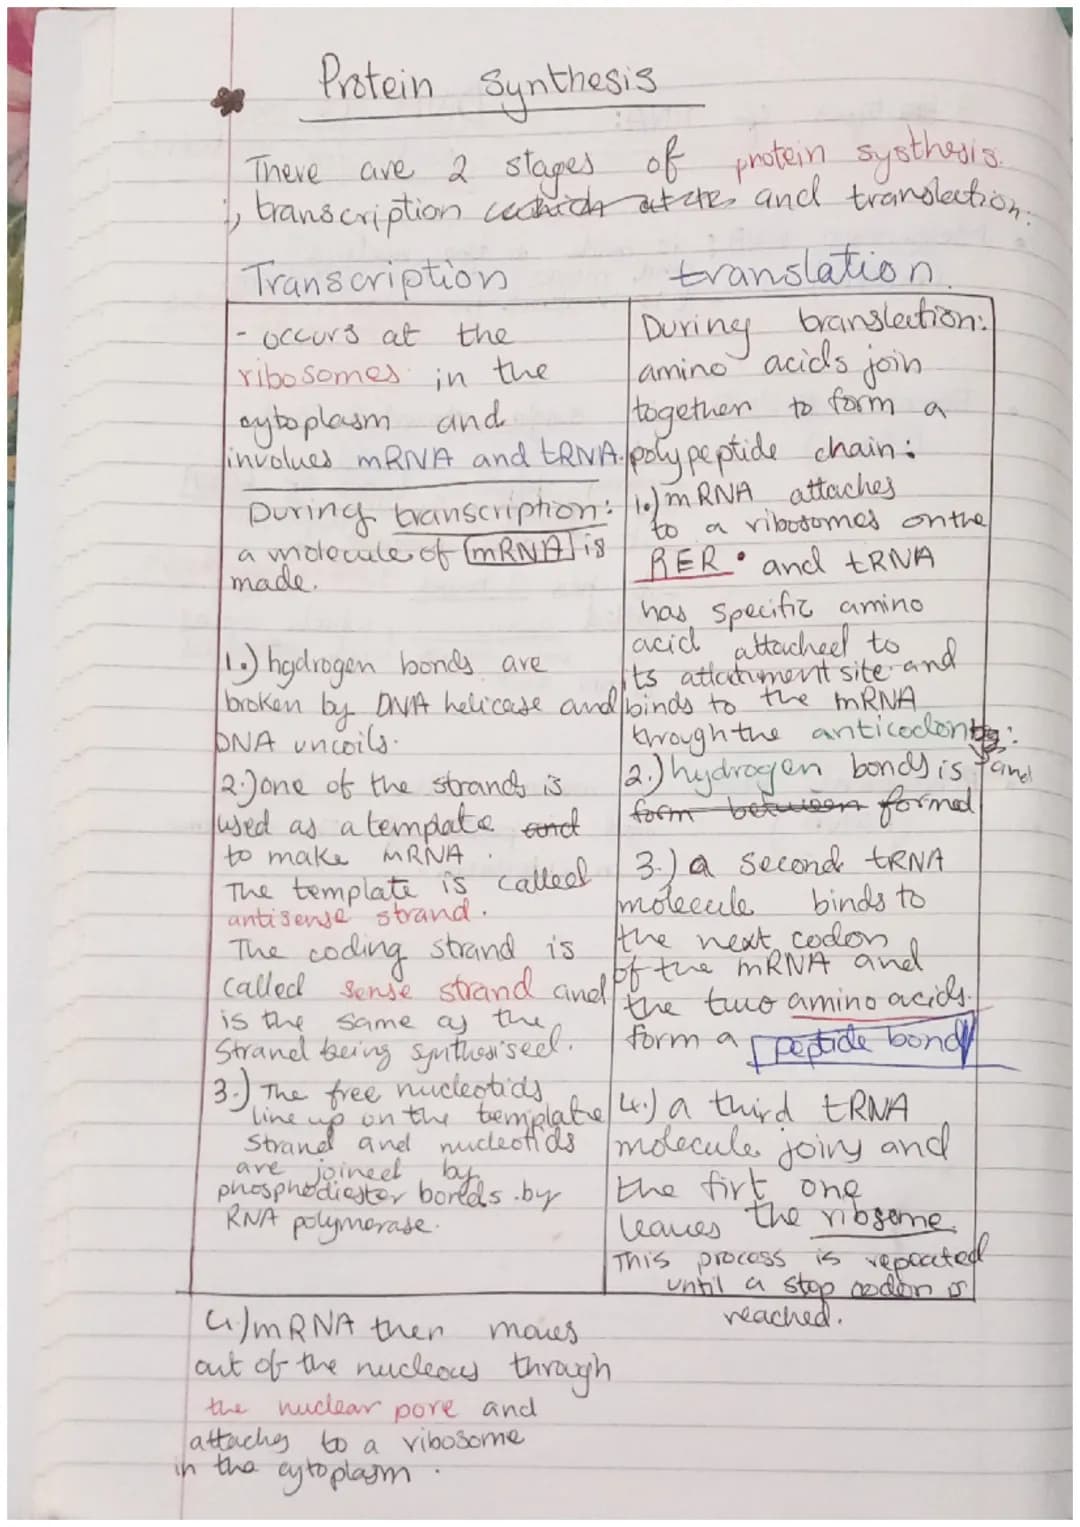 Protein synthesis
There are 2 stages of protein systhesis.
transcription and translation.
Transcription
- occurs at the
ribosomes in the
cytoplasm and
involues mRNA and tRNA.
During transcription:
a molecule of mRNA is
made.
1.) hydrogen bonds are
broken by DNA helicase and
DNA uncoils.
2.) one of the strands is
used as a template and
to make mRNA.
The template is called
antisense strand.
The coding strand is
called sense strand and
is the same as the
Strand being synthesised.
3.) The free nucleotids
line up on the template
Strand and nucleotids
are joined by
phosphodiester bonds by
RNA polymerase.
4.) mRNA then moves
out of the nucleous through
the nuclear pore and
attaches to a ribosome
in the cytoplasm.
translation.
During translation:
amino acids join
together to form a
polypeptide chain:
1.) mRNA attaches
to a ribosomes on the
RER • and tRNA
has specific amino
acid attached to
its attatchment site and
binds to the mRNA
through the anticodon
2.) hydrogen bonds is and
form between formed
3.) a second tRNA
molecule binds to
the next codon
of the mRNA and
the two amino acids.
form a peptide bond
4.) a third tRNA
molecule joins and
the firt one
leaves the ribsome
This process is repeated
until a stop codon is
reached.